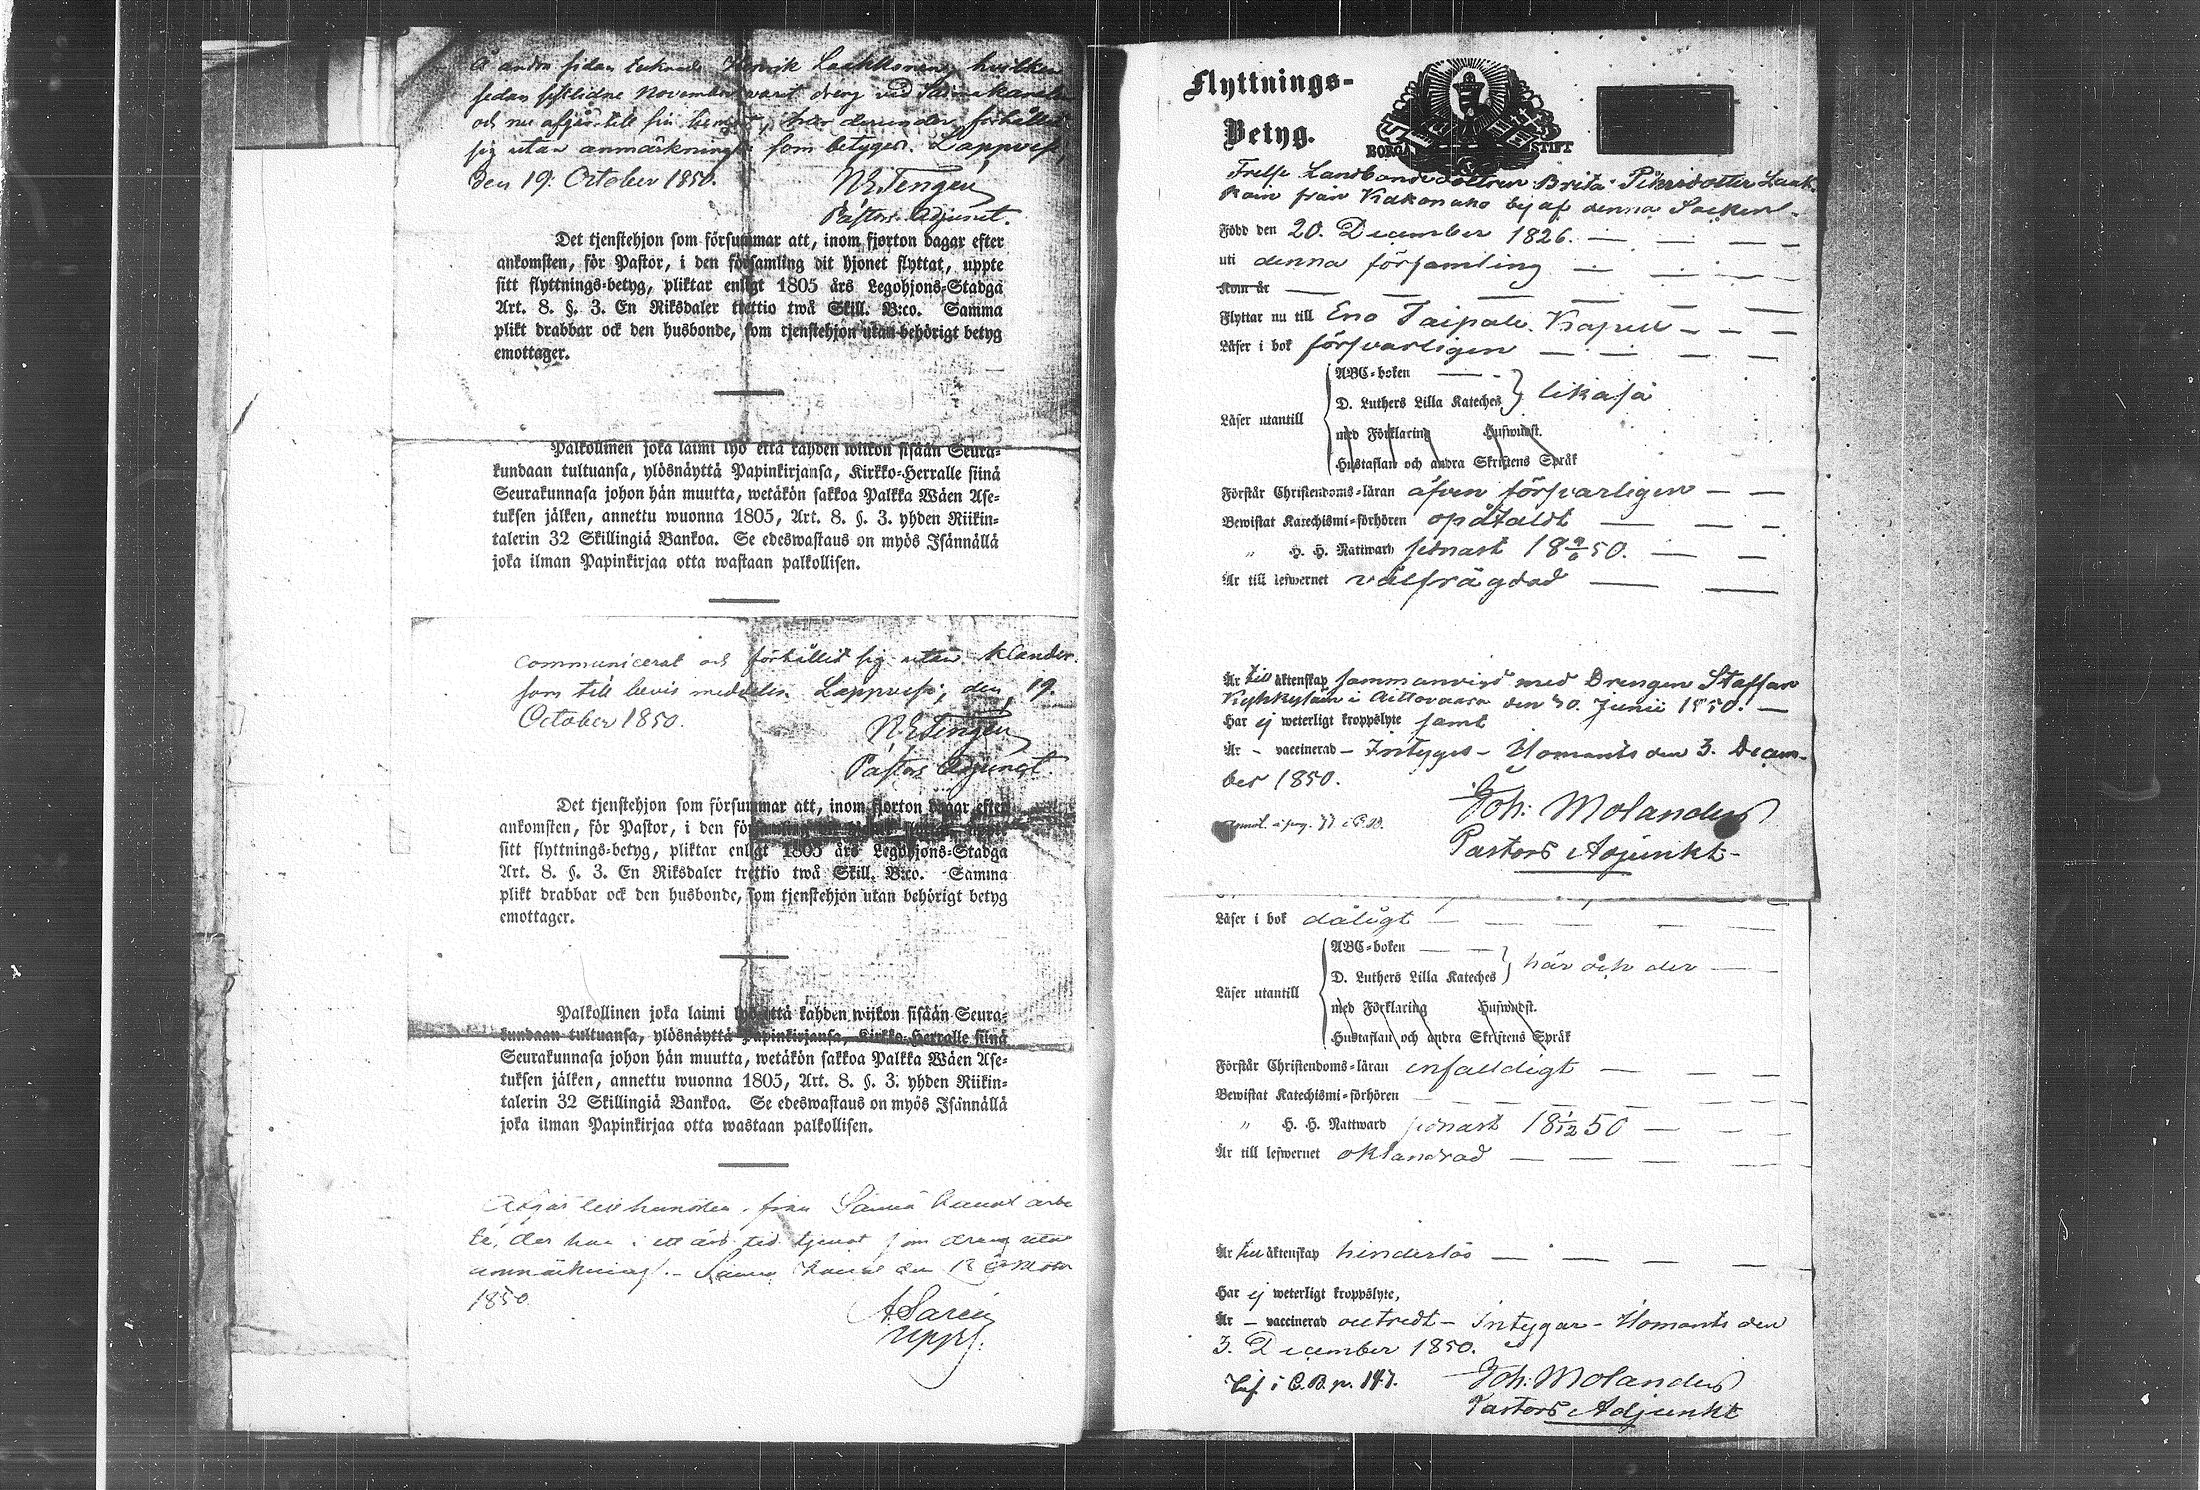 Å andra sidan tecknade Henrik hvilken
sedan sistlidne November varit dreng vid
och nu afgår till sin hemort, har derunder förhållit
sig utan anmärkning som betygar. Lappvesi,
den 19. October 1850.
N E Tengén
Pastors Adjunct.
Det tjenstehjon som försummar att, inom fjorton dagar efter
ankomsten, för Pastor, i den församling dit hjonet flyttat, uppte
sitt flyttnings-betyg, pliktar enligt 1805 års Legohjons-Stadga
Art. 8. §. 3. En Riksdaler trettio twå Skill. B:co. Samma
plikt drabbar ock den husbonde, som tjenstehjon utan behörigt betyg
emottager.
Palkollinen joka laimi lyö että kahden wiikon sisään Seura-
kundaan tultuansa, ylösnäyttä Papinkirjansa, Kirkko-Herralle siinä
Seurakunnasa johon hän muutta, wetäkön sakkoa Palkka Wäen Ase-
tuksen jälken, annettu wuonna 1805, Art. 8. §. 3. yhden Riikin-
talerin 32 Skillingiä Bankoa. Se edeswastaus on myös Isännällä
joka ilman Papinkirjaa otta wastaan palkollisen.
communicerat och förhållit sig utan klander
som till bevis meddelas Lappvesi, den 19.
October 1850.
N E Tengén
Pastors Adjunct.
Det tjenstehjon som försummar att, inom fjorton dagar efter
ankomsten, för Pastor, i den församling dit hjonet flyttat, uppte
sitt flyttnings-betyg, pliktar enligt 1805 års Legohjons-Stadga
Art. 8. §. 3. En Riksdaler trettio twå Skill. B:co. Samma
plikt drabbar ock den husbonde, som tjenstehjon utan behörigt betyg
emottager.
Palkollinen joka laimi lyö että kahden wiikon sisään Seura-
kundaan tultuansa, ylösnäyttä Papinkirjansa, Kirkko-Herralle siinä
Seurakunnasa johon hän muutta, wetäkön sakkoa Palkka Wäen Ase-
tuksen jälken, annettu wuonna 1805, Art. 8. §. 3. yhden Riikin-
talerin 32 Skillingiä Bankoa. Se edeswastaus on myös Isännällä
joka ilman Papinkirjaa otta wastaan palkollisen.
Afgår till hemorten från Saima Kanal arbe
te, der han i ett års tid tjenat som dreng utan
anmärkning. - Saima Kanal den 18 October
1850.
Flyttnings-
Betyg.
BORGÅ STIFT
Frelse Landbonde dottren Brita Pehrsdotter Laak-
kain från Kakonaho by af denna Socken -
Född den 20. December 1826. -
uti denna församling -
Kom år -
Flyttar nu till Eno Taipale Kapell -
Läser i bok försvarligen -
ABC-boken -
D. Luthers Lilla Kateches } likaså
Läser utantill
med Förklaring Huswudst.
Hustaflan och andra Skriftens Språk
Förstår Christendoms-läran äfven försvarligen -
Bewistat Katechismi-förhören opåtaldt -
" H. H. Nattward senast 18 50. -
Är till lefwernet välfrägdad -
Är till äktenskap sammanvigd med Drengen Staffan
i Aittovaara den 30. Junii 1850. -
Har ej weterligt kroppslyte samt
Är - vaccinerad - Intygas - Ilomants den 3. Decem-
ber 1850.
Joh: Molander
Pastors Adjunkt -
Läser i bok dåligt -
ABC-boken -
D. Luthers Lilla Kateches } här och der -
Läser utantill
med Förklaring Huswudst.
Hustaflan och andra Skriftens Språk
Förstår Christendoms-läran enfaldigt -
Bewistat Katechismi-förhören -
" H. H. Nattward senast 18 1/12 50 -
Är till lefwernet oklandrad -
Är till äktenskap hinderlös -
Har ej weterligt kroppslyte,
Är - vaccinerad - Intygar - Ilomants den
3. December 1850.
Inf. i C.B. p. 147.
Joh: Molander
Pastors Adjunkt